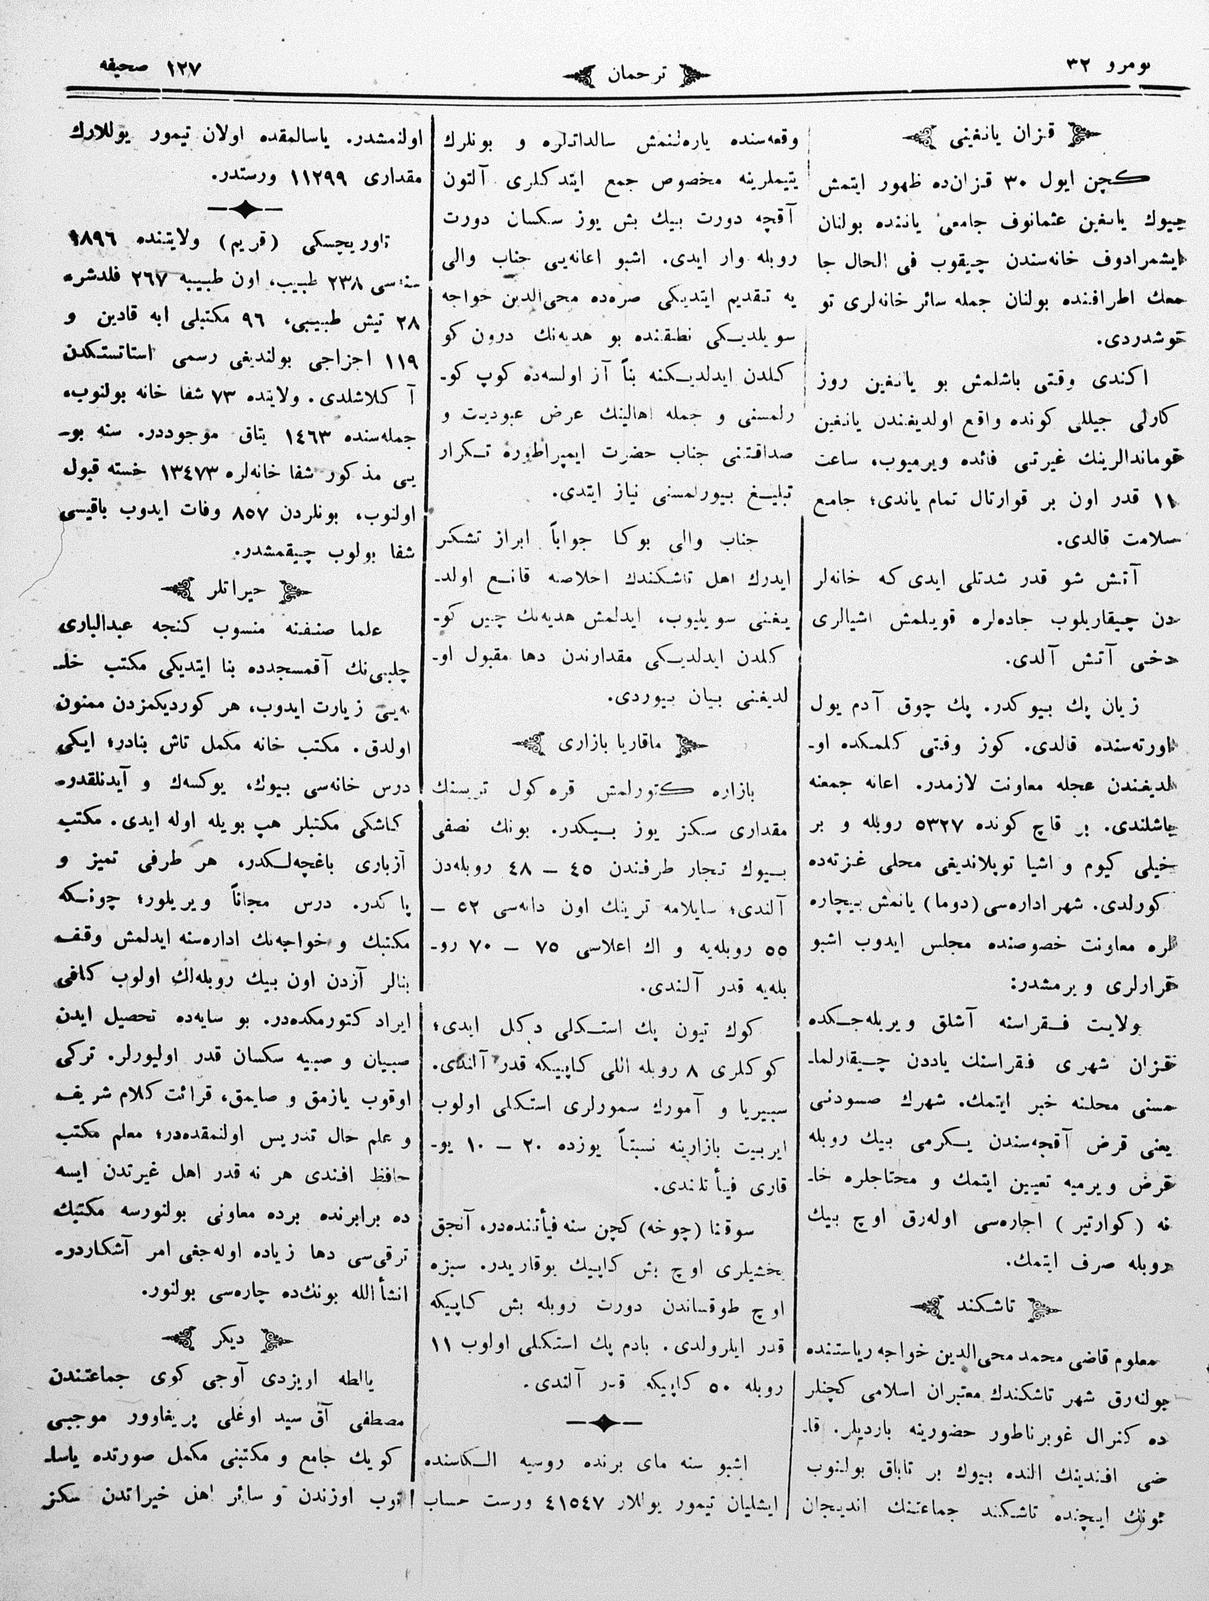 نومرو ٣٢
ترجمان
١٢٧ صحیفه
قزان یانغینی
كچن ایول ٣٠ قزان‌ده ظهور ایتمش
بیوك یانغین عثمانوف جامعی یاننده بولنان
ایشمرادوف خانه‌سندن چیقوب فی الحال جا
معك اطرافنده بولنان جمله سائر خانه‌لری تو
توشدردی.
اكندی وقتی باشلمش بو یانغین روز
كارلی جیللی كونده واقع اولدیغندن یانغین
قوماندالرینك غیرتی فائده ویرمیوب، ساعت
١١ قدر اون بر قوارتال تمام یاندی؛ جامع
سلامت قالدی.
آتش شو قدر شدتلی ایدی كه خانه‌لر
دن چیقاریلوب جاده‌لره قویلمش اشیالری
دخی آتش آلدی.
زیان پك بیوكدر. پك چوق آدم یول
اورته‌سنده قالدی. كوز وقتی كلمكده او-
لدیغندن عجله معاونت لازمدر. اعانه جمعنه
باشلندی. بر قاچ كونده ٥٣٢٧ روبله و بر
خیلی كیوم و اشیا توپلاندیغی محلی غزته‌ده
كورلدی. شهر اداره‌سی (دوما) یانمش بیچاره
لره معاونت خصوصنده مجلس ایدوب اشبو
قرارلری ویرمشدر:
ولایت فقراسنه آشلق ویریله‌جكده
قزان شهری فقراسنك یاددن چیقارلما-
مسنی محلنه خبر ایتمك. شهرك صسودنی
یعنی قرض آقچه‌سندن یكرمی بیك روبله
قرض ویرمیه تعیین ایتمك و محتاجلره خا-
نه (كوارتیر) اجاره‌سی اوله‌رق اوچ بیك
روبله صرف ایتمك.
تاشكند
معلوم قاضی محمد محی‌الدین خواجه ریاستنده
بولنه‌رق شهر تاشكندك معتبران اسلامی كچنلر
ده كنرال غوبرناطور حضورینه باردیلر. قا-
ضی افندینك النده بیوك بر تاباق بولنوب
بونك ایچنده تاشكند جماعتنك اندیجان
وقعه‌سنده یاره‌لنمش سالداتلره و بونلرك
یتیملرینه مخصوص جمع ایتدكلری آلتون
آقچه دورت بیك بش یوز سكسان دورت
روبله وار ایدی. اشبو اعانه‌یی جناب والی
یه تقدیم ایتدیكی صره‌ده محی‌الدین خواجه
سویلدیكی نطقنده بو هدیه‌نك درون كو
كلدن ایدلدیكنه بناً آز اولسه‌ده كوپ كو-
رلمسنی و جمله اهالینك عرض عبودیت و
صداقتنی جناب حضرت ایمپراطوره تكرار
تبلیغ بیورلمسنی نیاز ایتدی.
جناب والی بوكا جواباً ابراز تشكر
ایدرك اهل تاشكندك اخلاصنه قانع اولد-
یغنی سویلیوب، ایدلمش هدیه‌نك چین كو-
كلدن ایدلدیكی مقدارندن دها مقبول او-
لدیغنی بیان بیوردی.
ماقاریا بازاری
بازاره كتورلمش قره كول تریسنك
مقداری سكز یوز بیكدر. بونك نصفی
بیوك تجار طرفندن ٤٥ – ٤٨ روبله‌دن
آلندی؛ سایلامه ترینك اون دانه‌سی ٥٢ –
٥٥ روبله‌یه و اك اعلاسی ٧٥ – ٧٠ رو-
بله‌یه قدر آلندی.
كوك تیون پك استكلی دكل ایدی؛
كوكلری ٨ روبله اللی كاپیكه قدر آلندی.
سیبیریا و آمورك سمورلری استكلی اولوب
ایربیت بازارینه نسبتاً یوزده ٢٠ – ١٠ یو-
قاری فیأتلندی.
سوقنا (چوخه) كچن سنه فیأتنده‌در، آنجق
یخشیلری اوچ بش كاپیك یوقاریدر. سبزه
اوچ طوقساندن دورت روبله بش كاپیكه
قدر ایلرولدی. بادم پك استكلی اولوب ١١
روبله ٥٠ كاپیكه قدر آلندی.
اشبو سنه مای برنده روسیه الكاسنده
ایشلیان تیمور یوللار ٤١٥٤٧ ورست حساب
اولنمشدر. یاسالمقده اولان تیمور یوللارك
مقداری ١١٢٩٩ ورستدر.
تاوریچسكی (قریم) ولایتنده ١٨٩٦
سنه‌سی ٢٣٨ طبیب، اون طبیبه ٢٦٧ فلدشره
٢٨ تیش طبیبی، ٩٦ مكتبلی ابه قادین و
١١٩ اجزاجی بولندیغی رسمی استاتستكدن
آكلاشلدی. ولایتده ٧٣ شفا خانه بولنوب،
جمله‌سنده ١٤٦٣ یتاق موجوددر. سنه بو-
یی مذكور شفا خانه‌لره ١٣٤٧٣ خسته قبول
اولنوب، بونلردن ٨٥٧ وفات ایدوب باقیسی
شفا بولوب چیقمشدر.
خیراتلر
علما صنفنه منسوب كنجه عبدالباری
چلبی‌نك آقمسجدده بنا ایتدیكی مكتب خا-
نه‌یی زیارت ایدوب، هر كوردیكمزدن ممنون
اولدق. مكتب خانه مكمل تاش بنادر؛ ایكی
درس خانه‌سی بیوك، یوكسه‌ك و آیدنلقدر-
كاشكی مكتبلر هپ بویله اوله ایدی. مكتب
آزباری باغچه‌لكدر، هر طرفی تمیز و
پاكدر. درس مجاناً ویریلور؛ چونكه
مكتبك و خواجه‌نك اداره‌سنه ایدلمش وقف
بنالر آزدن اون بیك روبله‌لك اولوب كافی
ایراد كتورمكده‌در. بو سایه‌ده تحصیل ایدن
صبیان و صبیه سكسان قدر اولیورلر. تركی
اوقوب یازمق و صایمق، قرائت كلام شریف
و علم حال تدریس اولنمقده‌در؛ معلم مكتب
حافظ افندی هر نه قدر اهل غیرتدن ایسه
ده برابرنده برده معاونی بولنورسه مكتبك
ترقی‌سی دها زیاده اوله‌جغی امر آشكاردر-
انشأالله بونك‌ده چاره‌سی بولنور.
دیكر
یالطه اویزدی آوجی كوی جماعتندن
مصطفی آق سید اوغلی پریغاوور موجبی
كویك جامع و مكتبنی مكمل صورتده یاسا-
توب اوزندن و سائر اهل خیراتدن سكز